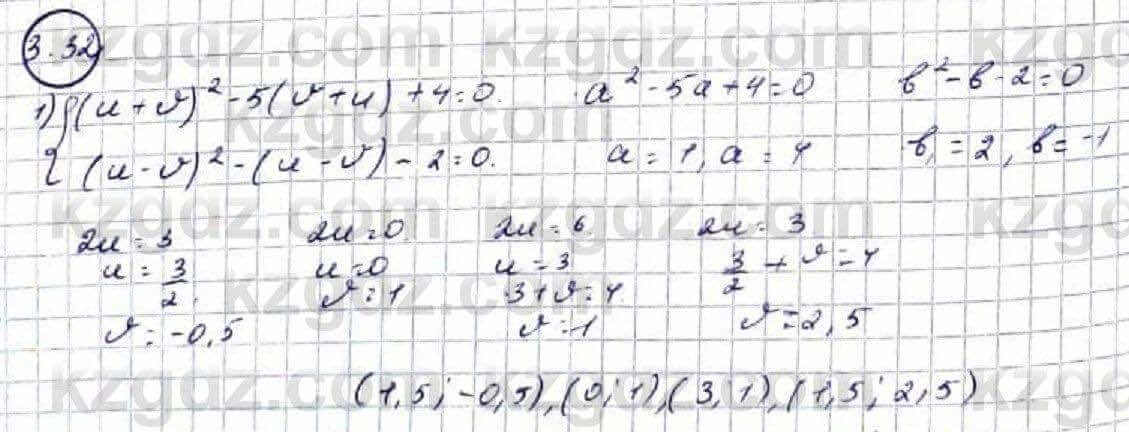 3.32
1) { (u + v)² - 5(v + u) + 4 = 0. a² - 5a + 4 = 0 b² - b - 2 = 0
(u - v)² - (u - v) - 2 = 0. a = 1, a = 4 b₁ = 2, b = -1
2u = 3 2u = 0. 2u = 6. 2u = 3
u = 3/2. u = 0 u = 3 3/2 + v = 4
v = 1 3 + v = 4
v = -0,5 v = 1 v = 2,5
(1,5; -0,5), (0; 1), (3, 1), (1,5; 2,5)
kzgdz.com